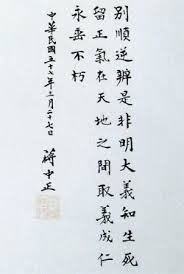 別順逆辨是非明大義知生死
留正氣在天地之間取義成仁
永垂不朽
蔣中正
中華民國五十七年三月二十七日